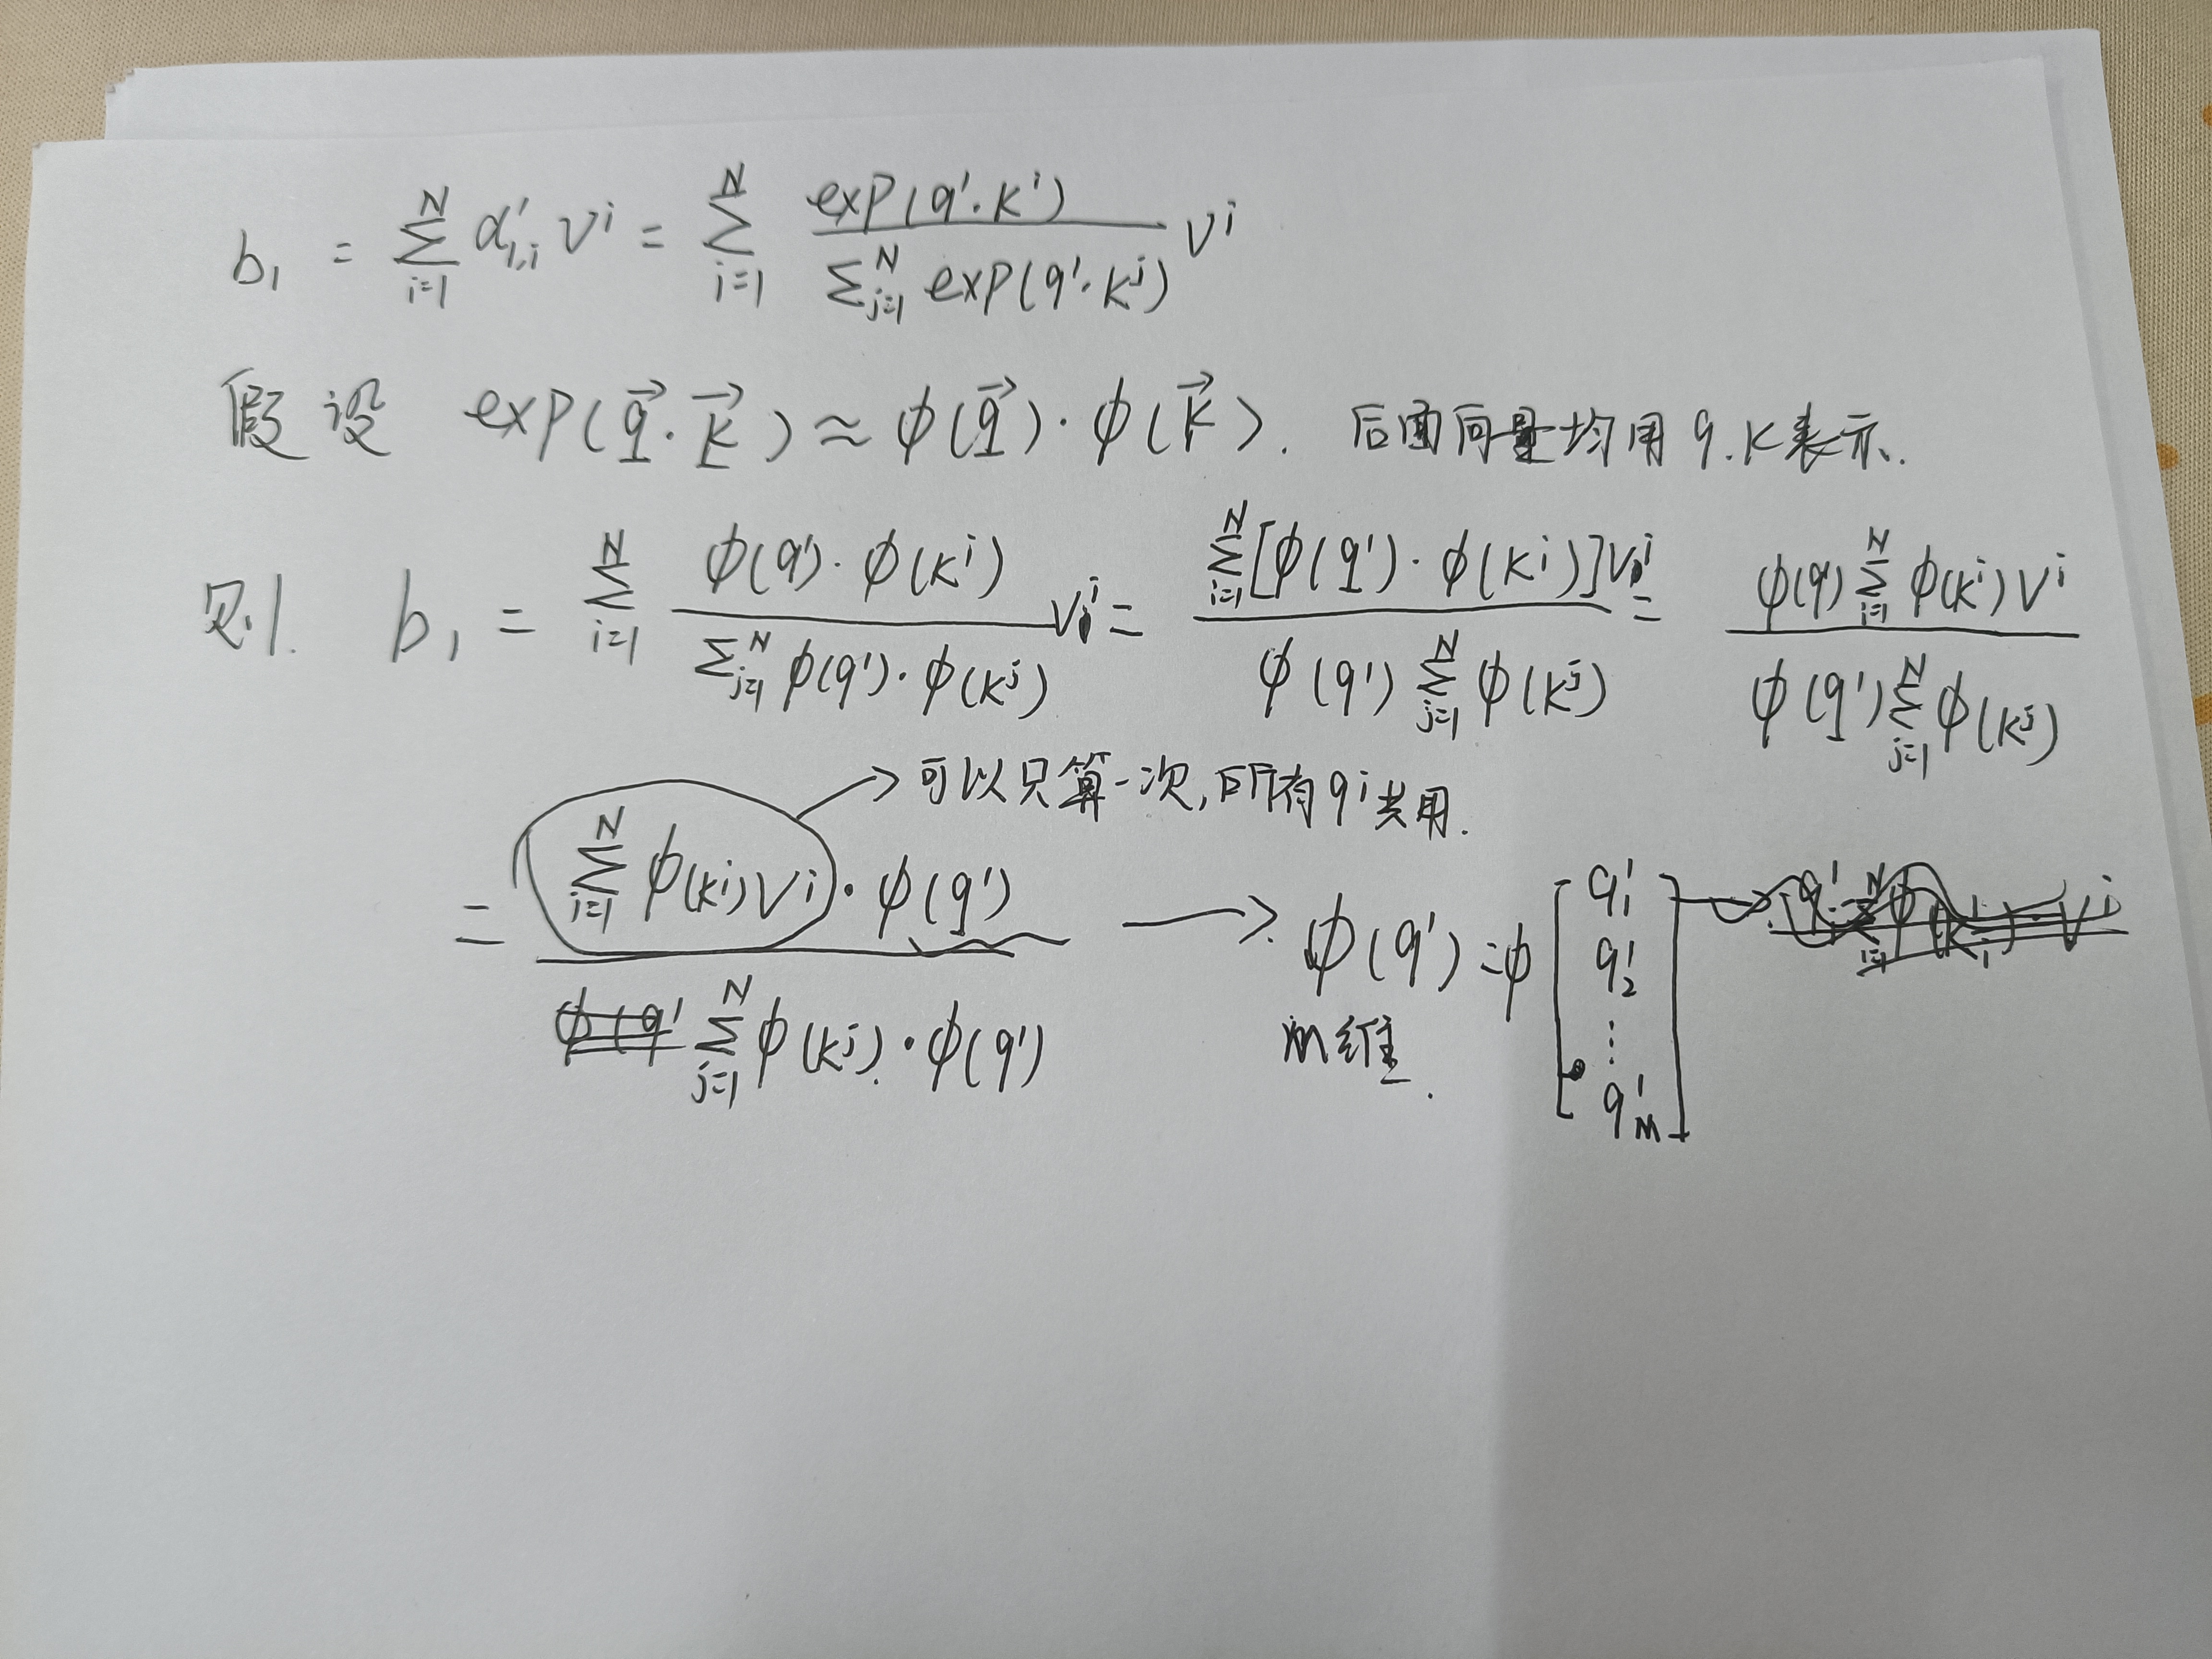 b₁ = Σ_{i=1}^{N} α'₁,ᵢ vⁱ = Σ_{i=1}^{N} exp(q¹·kⁱ) / Σ_{j=1}^{N} exp(q¹·kʲ) vⁱ
假设 exp(q⃗·k⃗) ≈ φ(q⃗)·φ(k⃗). 后面向量均用q.k表示.
则. b₁ = Σ_{i=1}^{N} φ(q¹)·φ(kⁱ) / Σ_{j=1}^{N} φ(q¹)·φ(kʲ) vⁱ = Σ_{i=1}^{N} [φ(q¹)·φ(kⁱ)]vⁱ / φ(q¹) Σ_{j=1}^{N} φ(kʲ) = φ(q¹) Σ_{i=1}^{N} φ(kⁱ)vⁱ / φ(q¹) Σ_{j=1}^{N} φ(kʲ)
→ 可以只算一次,所有qⁱ共用.
= Σ_{i=1}^{N} φ(kⁱ)vⁱ · φ(q¹) / Σ_{j=1}^{N} φ(kʲ)·φ(q¹) → φ(q¹) = φ [q¹₁ q¹₂ ⋮ q¹_M]
M维.